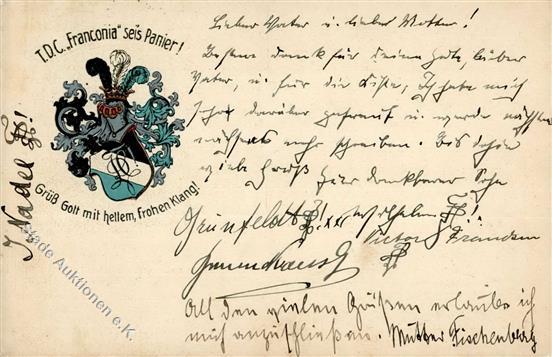 T.D.C. „Franconia" sei's Panier!
Grüß Gott mit hellem, frohen Klang!
J. Nadel
Lieber Vater u. lieber Mutter!
Besten Dank für Deine Güte, lieber
Vater, u. für die Kiste, Ich habe mich
sehr darüber gefreut u. werde nächstens
mehr schreiben. Bis dahin
viele Grüße Euer dankbarer Sohn
Grünfeldt xx Wilhelm
Victor
All den vielen Grüßen erlaube ich
mich anzuschließen. Mutter Fischenberg
Made Auktionen e.K.